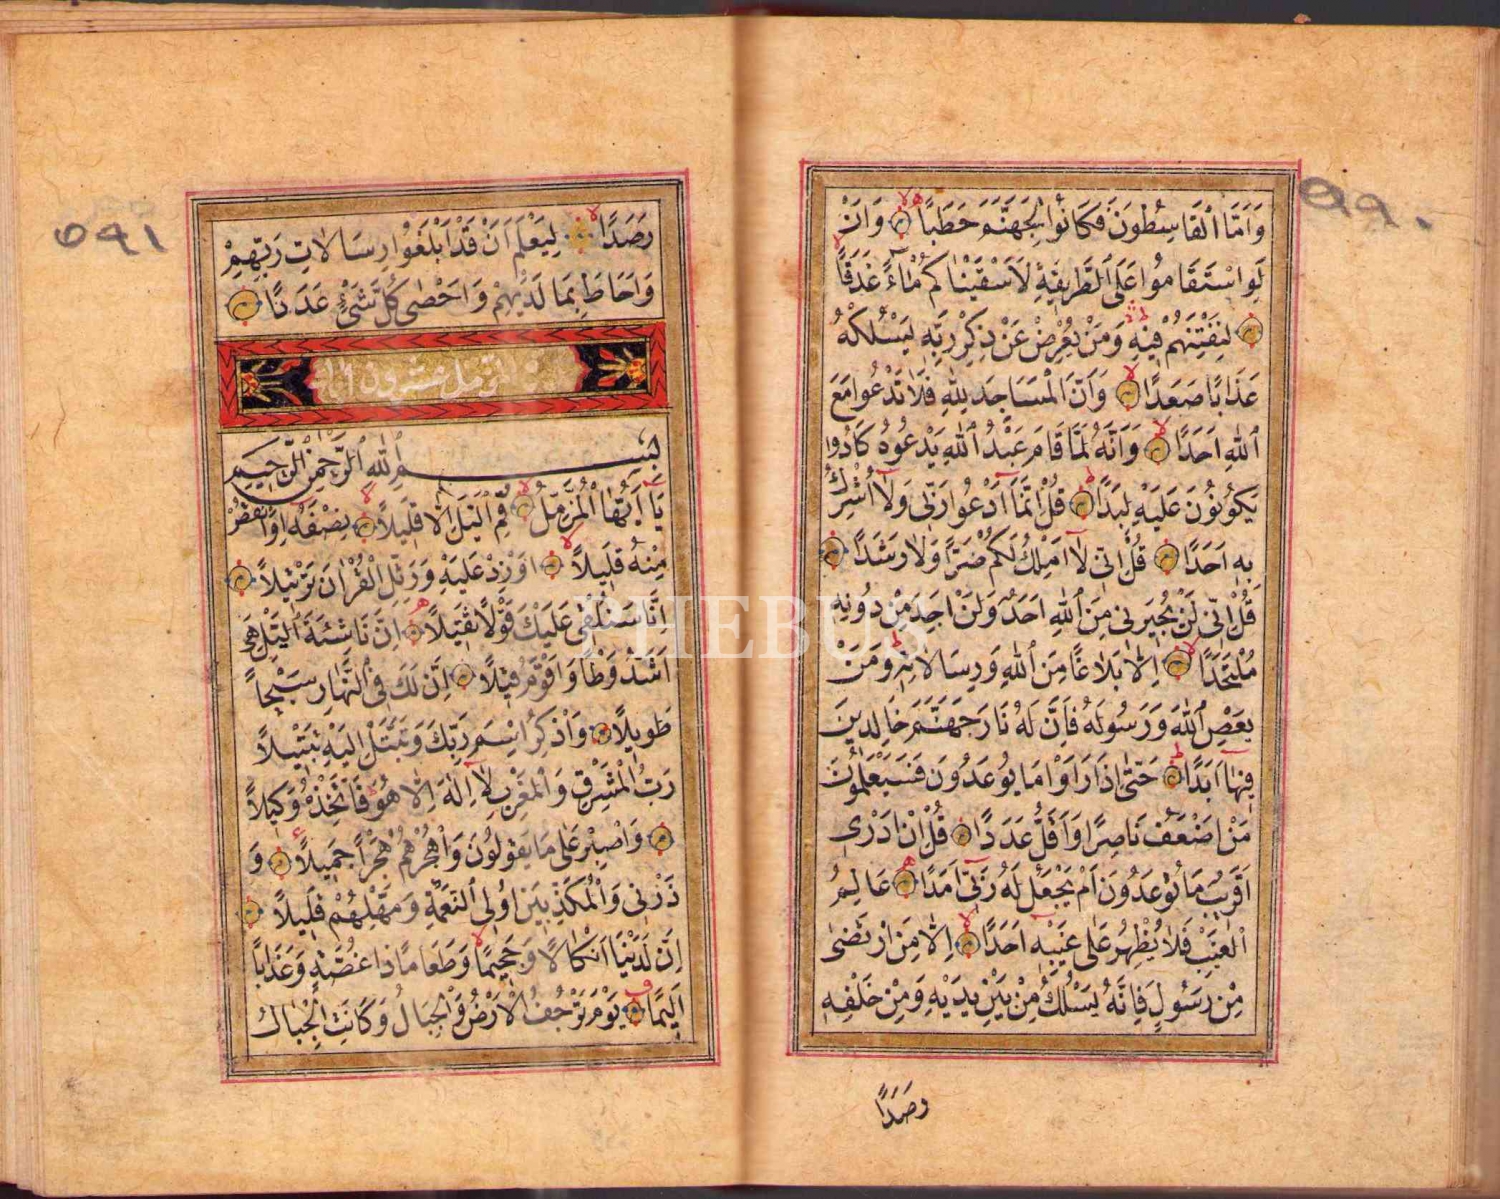 ٥٩٠
وَاَمَّا الْقَاسِطُونَ فَكَانُوا لِجَهَنَّمَ حَطَبًا وَاَنْ
لَوِ اسْتَقَامُوا عَلَى الطَّرِيقَةِ لَاَسْقَيْنَاكُمْ مَاءً غَدَقًا
لِنَفْتِنَهُمْ فِيهِ وَمَنْ يُعْرِضْ عَنْ ذِكْرِ رَبِّهِ يَسْلُكْهُ
عَذَابًا صَعَدًا وَاَنَّ الْمَسَاجِدَ لِلّٰهِ فَلَا تَدْعُوا مَعَ
اللّٰهِ اَحَدًا وَاَنَّهُ لَمَّا قَامَ عَبْدُ اللّٰهِ يَدْعُوهُ كَادُوا
يَكُونُونَ عَلَيْهِ لِبَدًا قُلْ اِنَّمَا اَدْعُوا رَبِّى وَلَا اُشْرِكُ
بِهِ اَحَدًا قُلْ اِنِّى لَا اَمْلِكُ لَكُمْ ضَرًّا وَلَا رَشَدًا
قُلْ اِنِّى لَنْ يُجِيرَنِى مِنَ اللّٰهِ اَحَدٌ وَلَنْ اَجِدَ مِنْ دُونِهِ
مُلْتَحَدًا اِلَّا بَلَاغًا مِنَ اللّٰهِ وَرِسَالَاتِهِ وَمَنْ
يَعْصِ اللّٰهَ وَرَسُولَهُ فَاِنَّ لَهُ نَارَ جَهَنَّمَ خَالِدِينَ
فِيهَا اَبَدًا حَتّٰى اِذَا رَاَوْا مَا يُوعَدُونَ فَسَيَعْلَمُونَ
مَنْ اَضْعَفُ نَاصِرًا وَاَقَلُّ عَدَدًا قُلْ اِنْ اَدْرِى
اَقَرِيبٌ مَا تُوعَدُونَ اَمْ يَجْعَلُ لَهُ رَبِّى اَمَدًا عَالِمُ
الْغَيْبِ فَلَا يُظْهِرُ عَلٰى غَيْبِهِ اَحَدًا اِلَّا مَنِ ارْتَضٰى
مِنْ رَسُولٍ فَاِنَّهُ يَسْلُكُ مِنْ بَيْنِ يَدَيْهِ وَمِنْ خَلْفِهِ
رَصَدًا
٥٩١
رَصَدًا لِيَعْلَمَ اَنْ قَدْ اَبْلَغُوا رِسَالَاتِ رَبِّهِمْ
وَاَحَاطَ بِمَا لَدَيْهِمْ وَاَحْصٰى كُلَّ شَىْءٍ عَدَدًا
المزمل عشرون
بِسْمِ اللّٰهِ الرَّحْمٰنِ الرَّحِيمِ
يَا اَيُّهَا الْمُزَّمِّلُ قُمِ الَّيْلَ اِلَّا قَلِيلًا نِصْفَهُ اَوِ انْقُصْ
مِنْهُ قَلِيلًا اَوْ زِدْ عَلَيْهِ وَرَتِّلِ الْقُرْاٰنَ تَرْتِيلًا
اِنَّا سَنُلْقِى عَلَيْكَ قَوْلًا ثَقِيلًا اِنَّ نَاشِئَةَ الَّيْلِ هِىَ
اَشَدُّ وَطْأً وَاَقْوَمُ قِيلًا اِنَّ لَكَ فِى النَّهَارِ سَبْحًا
طَوِيلًا وَاذْكُرِ اسْمَ رَبِّكَ وَتَبَتَّلْ اِلَيْهِ تَبْتِيلًا
رَبُّ الْمَشْرِقِ وَالْمَغْرِبِ لَا اِلٰهَ اِلَّا هُوَ فَاتَّخِذْهُ وَكِيلًا
وَاصْبِرْ عَلٰى مَا يَقُولُونَ وَاهْجُرْهُمْ هَجْرًا جَمِيلًا وَ
ذَرْنِى وَالْمُكَذِّبِينَ اُولِى النَّعْمَةِ وَمَهِّلْهُمْ قَلِيلًا
اِنَّ لَدَيْنَا اَنْكَالًا وَجَحِيمًا وَطَعَامًا ذَا غُصَّةٍ وَعَذَابًا
اَلِيمًا يَوْمَ تَرْجُفُ الْاَرْضُ وَالْجِبَالُ وَكَانَتِ الْجِبَالُ
PHEBUS